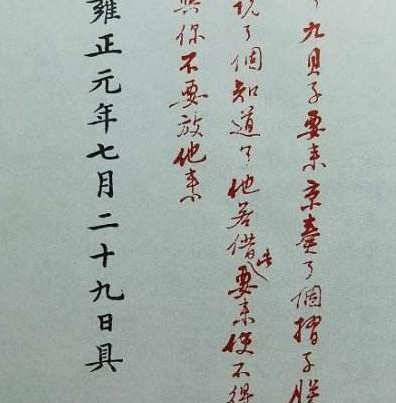 九貝子要来京奏了個摺子朕
说了個知道了他若借此要来使不得
與你不要放他来
雍正元年七月二十九日具